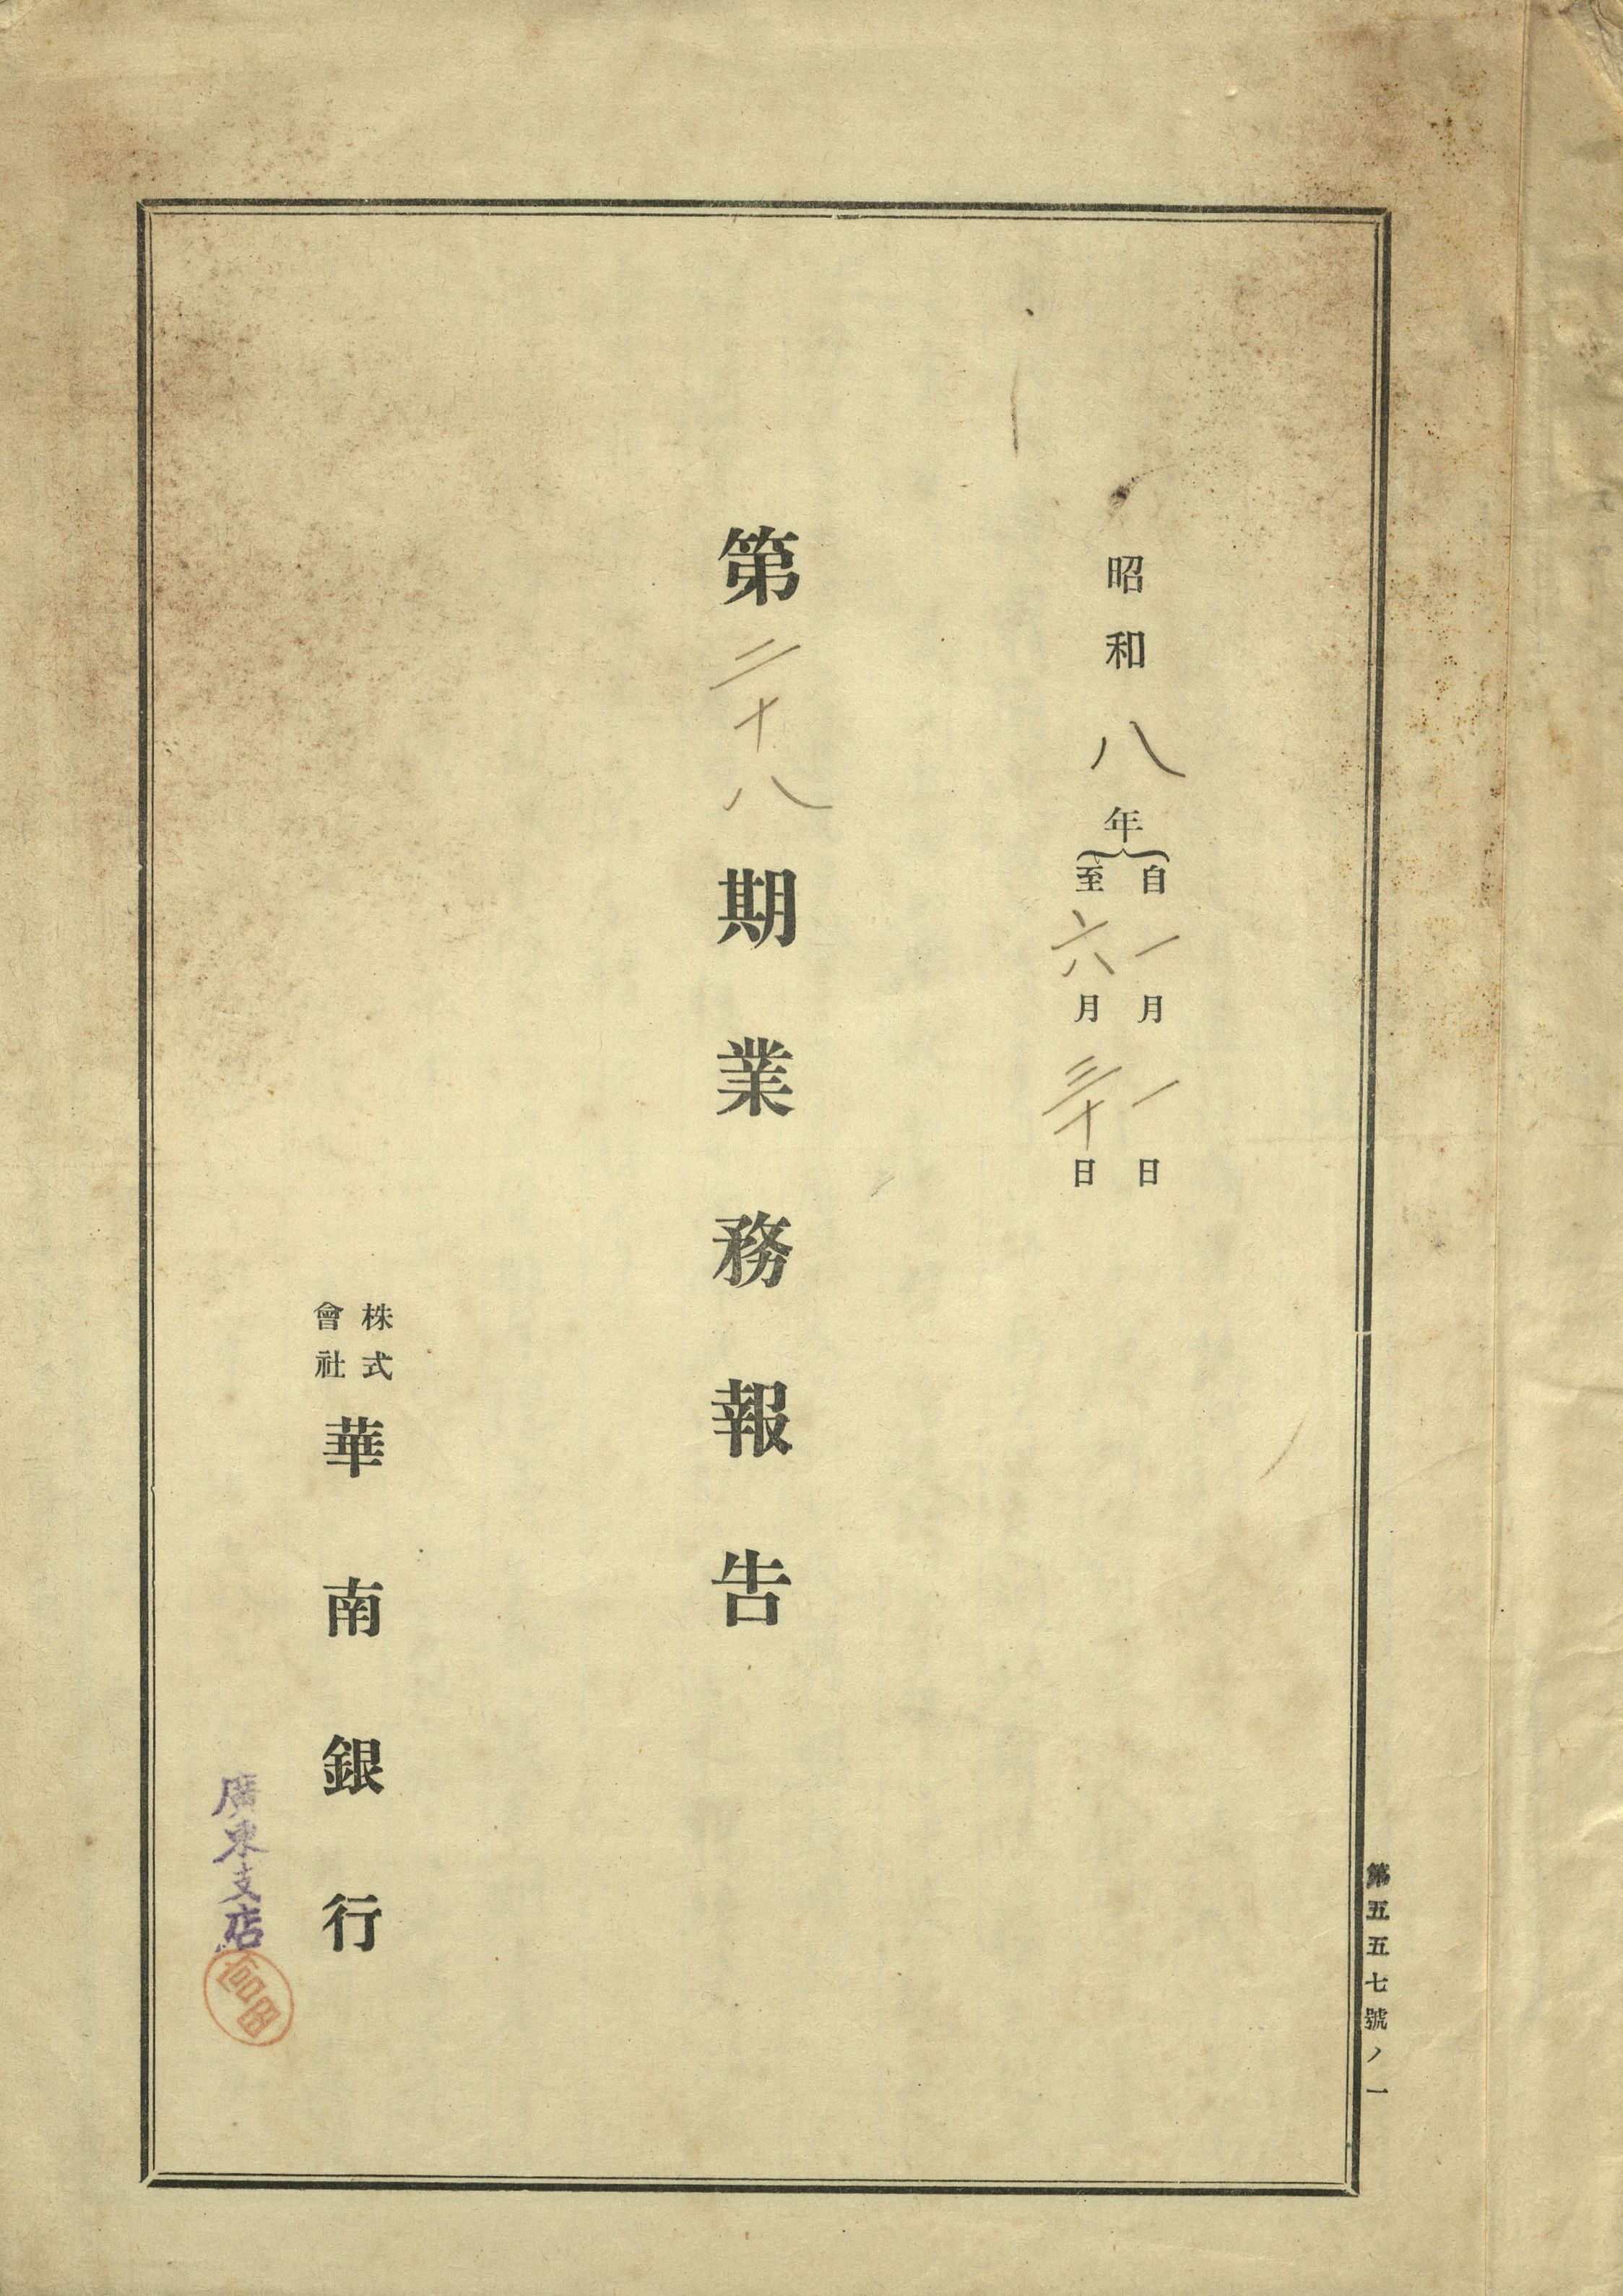 昭和八年
自一月一日
至六月三十日
第二十八期業務報告
株式
會社
華南銀行
廣東支店
第五五七號ノ一